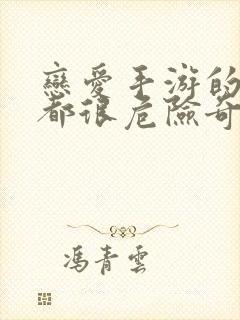 戀愛手游的
都很危險奇
馮青雲